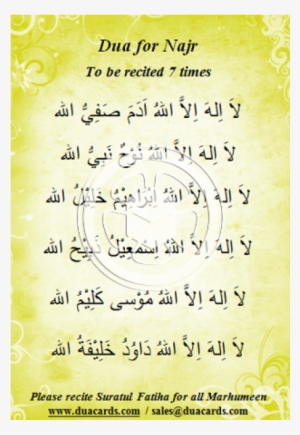 Dua for Najr
To be recited 7 times
لاَ اِلهَ اِلاَّ اللهُ اٰدَمَ صَفِيُّ الله
لاَ اِلهَ اِلاَّ اللهُ نُوْحٌ نَبِيُّ الله
لاَ اِلهَ اِلاَّ اللهُ اِبْرَاهِيْمُ خَلِيْلُ الله
لاَ اِلهَ اِلاَّ اللهُ اِسْمعِيْلُ ذَبِيْحُ الله
لاَ اِلهَ اِلاَّ اللهُ مُوْسٰى كَلِيْمُ الله
لاَ اِلهَ اِلاَّ اللهُ دَاوُدُ خَلِيْفَةُ الله
Please recite Suratul Fatiha for all Marhumeen
www.duacards.com / sales@duacards.com